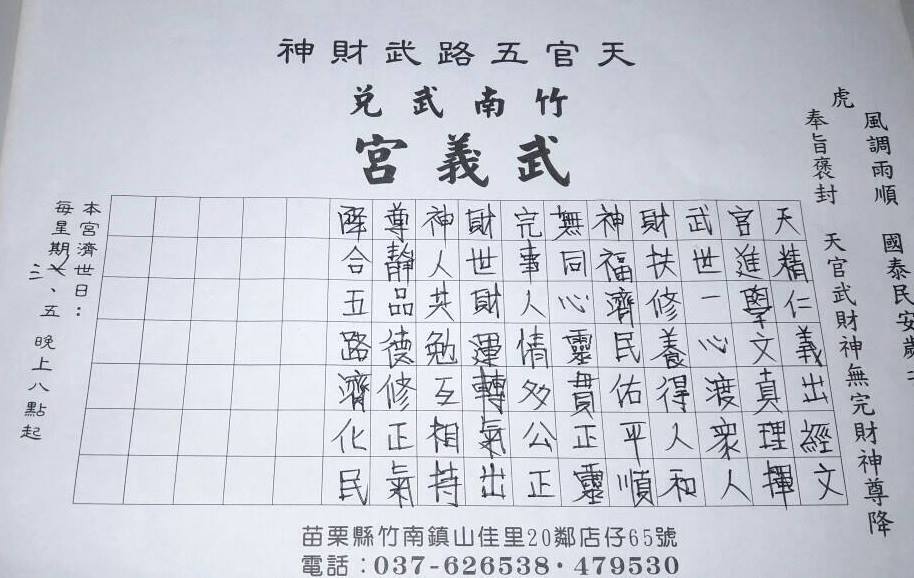 天官五路武財神
竹南武兌
武義宮
風調雨順 國泰民安歲
虎
奉旨褒封 天官武財神無完財神尊降
天精仁義出經文
官進學文真理揮
武世一心渡眾人
財扶修養得人和
神福濟民佑平順
無同心靈貫正靈
完事人情多公正
財世財運轉氣出
神人共勉互相持
尊靜品德修正氣
降合五路濟化民
本宮濟世日：
每星期三、五 晚上八點起
苗栗縣竹南鎮山佳里20鄰店仔65號
電話：037-626538・479530